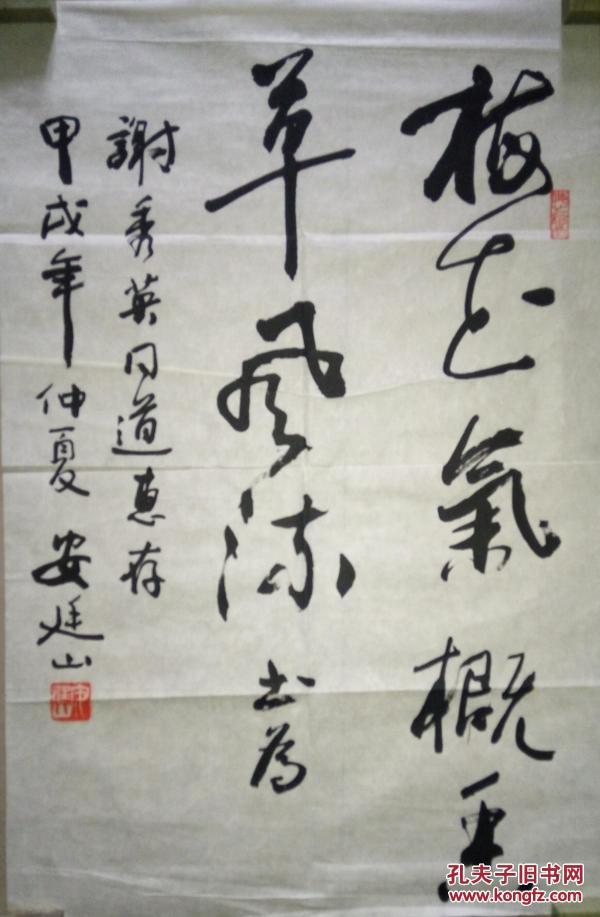 梅花氣概香
草風流 书為
謝秀英同道惠存
甲戌年仲夏 安廷山
孔夫子旧书网
www.kongfz.com